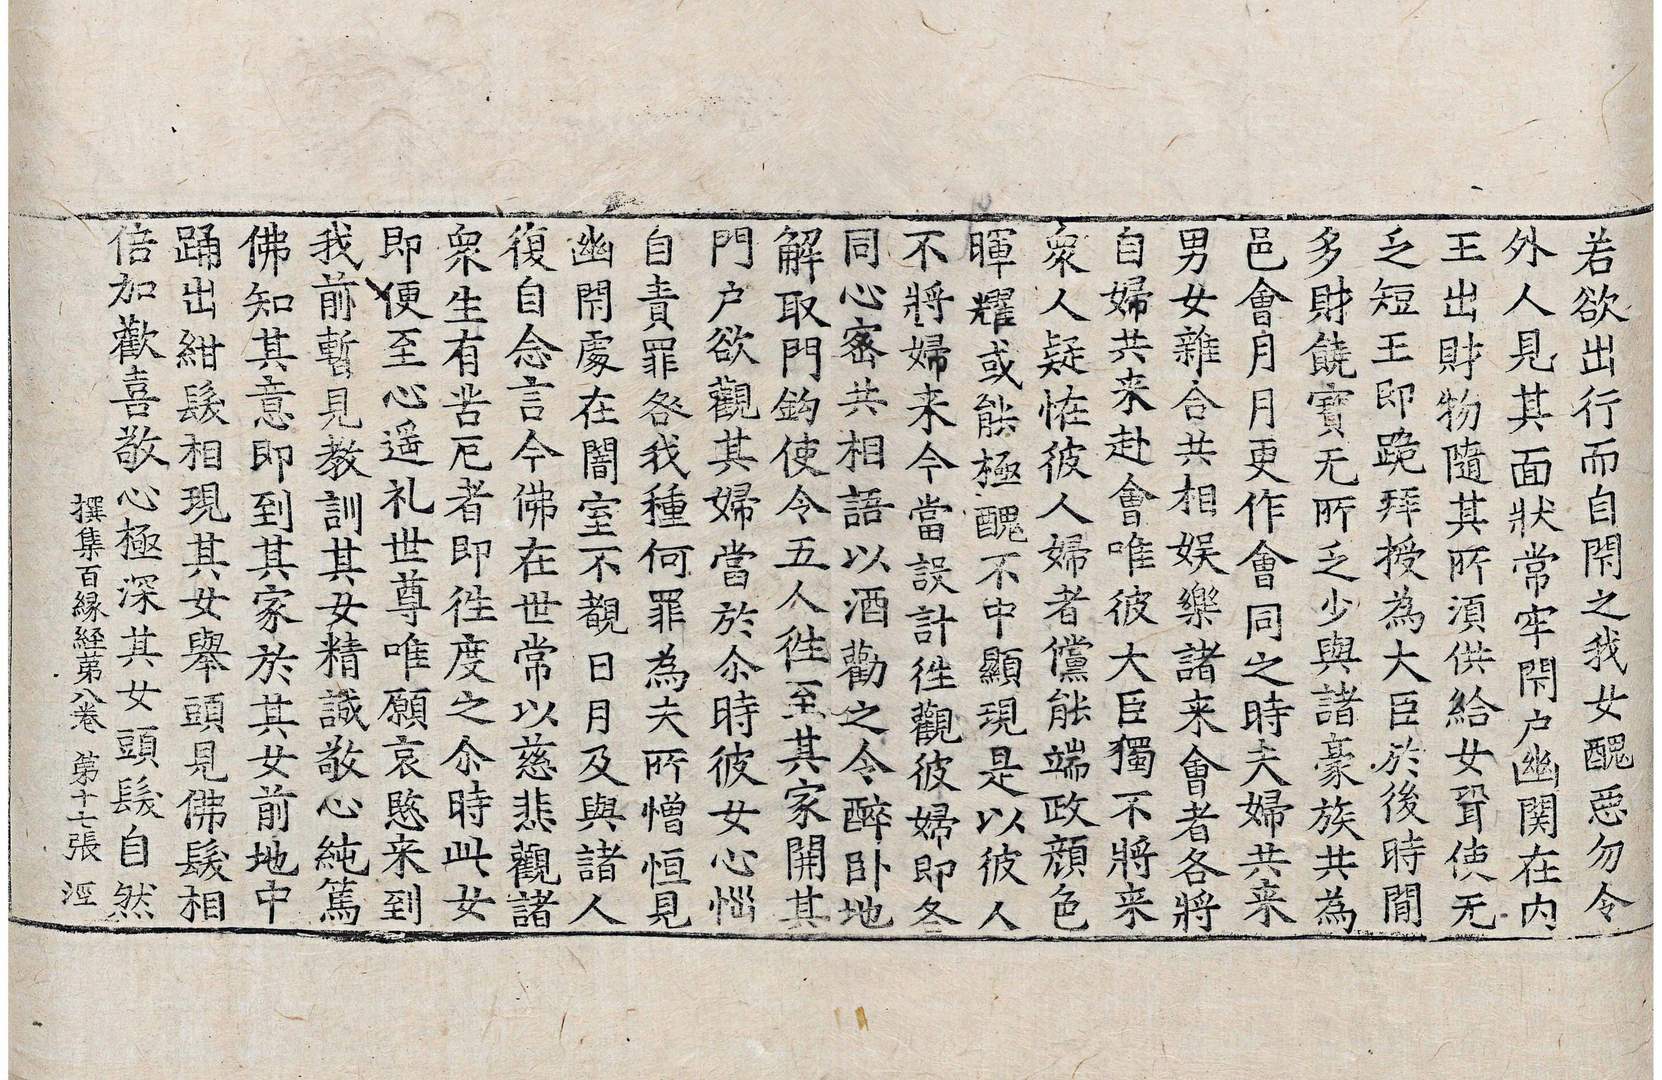 若欲出行而自閇之我女醜惡勿令
外人見其面狀常牢閇户幽関在内
王出財物隨其所湏供給女聟使无
乏短王即跪拜授為大臣於後時閒
多財饒寳无所乏少與諸豪族共為
邑會月月更作會同之時夫婦共来
男女雜合共相娱樂諸来會者各將
自婦共来赴會唯彼大臣獨不將来
衆人疑恠彼人婦者儻能端政顔色
暉耀或能極醜不中顯現是以彼人
不將婦来今當設計徃觀彼婦即各
同心宻共相語以酒勸之令醉卧地
解取門鈎使令五人徃至其家開其
門户欲觀其婦當於尒時彼女心惱
自責罪咎我種何罪為夫所憎恒見
幽閇處在闇室不覩日月及與諸人
復自念言今佛在世常以慈悲觀諸
衆生有苦厄者即徃度之尒時此女
即便至心遥礼世尊唯願哀愍来到
我前暫見教訓其女精誠敬心純篤
佛知其意即到其家於其女前地中
踊出紺髮相現其女舉頭見佛髮相
倍加歡喜敬心極深其女頭髮自然
撰集百縁経第八卷 第十七張 淫